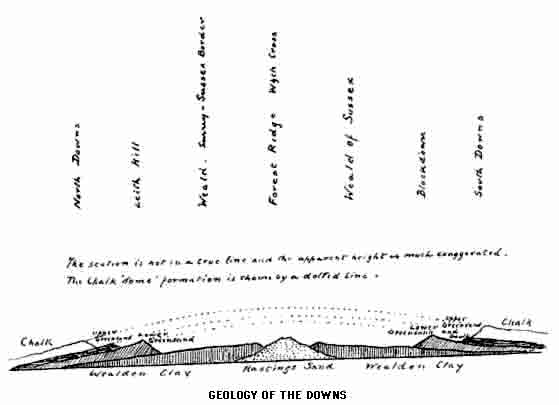 North Downs
Leith Hill
Weald. Surrey-Sussex Border
Forest Ridge Wych Cross
Weald of Sussex
Blackdown
South Downs
The section is not in a true line and the apparent height is much exaggerated.
The Chalk 'dome' formation is shown by a dotted line.
Chalk
Upper Greensand
Lower Greensand
Lower Greensand
Upper Greensand and
Chalk
Wealden Clay
Hastings Sand
Wealden Clay
GEOLOGY OF THE DOWNS